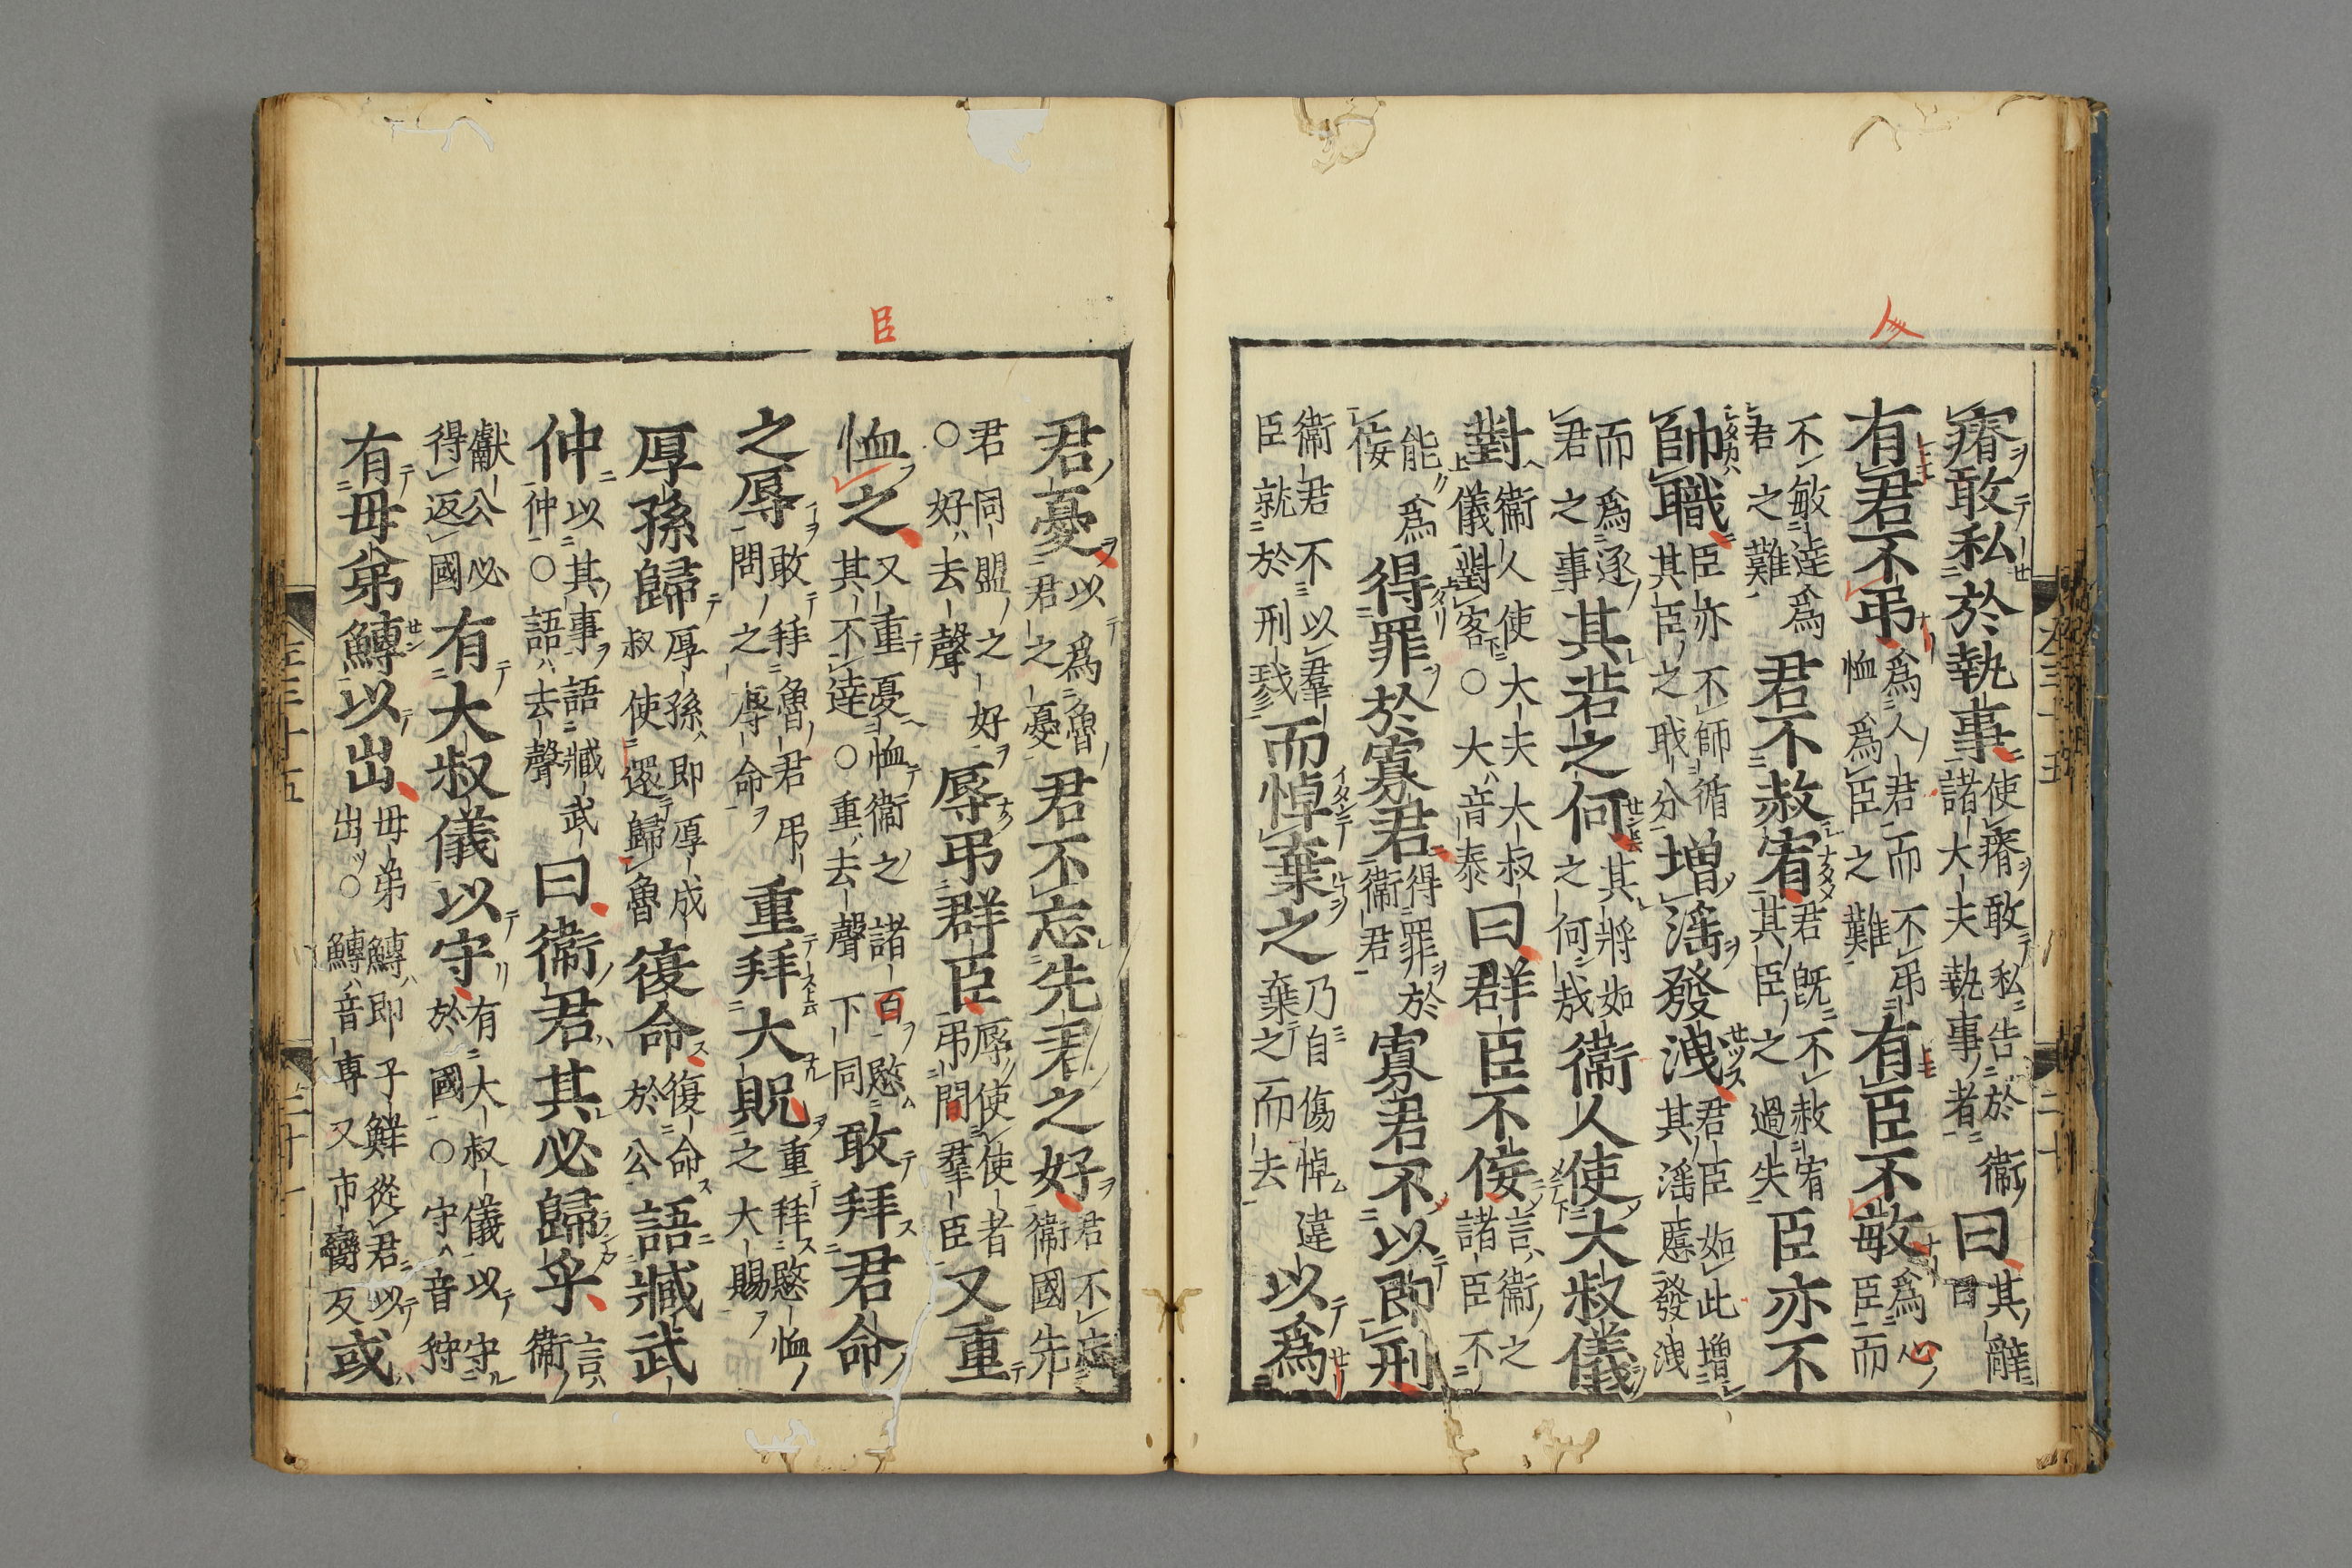 瘠敢私於執事使瘠敢私告於衛諸大夫執事者曰其辭曰
有君不弔爲人君而不弔恤爲臣之難有臣不敏爲心臣而
不敏達爲君之難君不赦宥君既不赦宥其臣之過失臣亦不
帥職臣亦不師循其臣之職分增淫發洩君臣如此增其淫慝發洩
而爲逐君之事其若之何其將如之何哉衛人使大叔儀
對衛人使大夫大叔儀對客○大音泰曰群臣不佞言衛之諸臣不
能爲佞得罪於寡君得罪於衛君寡君不以即刑
衛君不以羣臣就於刑戮而悼棄之乃自傷悼違棄之而去以爲
君憂以爲魯君之憂君不忘先君之好君不忘衛國先
君同盟之好○好去聲辱弔群臣辱使使者弔問羣臣又重
恤之又重憂恤衛之諸百愍其不達○重去聲下同敢拜君命
之辱敢拜魯君弔問之辱命重拜大貺重拜愍恤之大賜
厚孫歸厚孫即厚成叔使還歸魯復命復命於公語臧武
仲以其事語臧武仲○語去聲曰衛君其必歸乎言衛
獻公必得返國有大叔儀以守有大叔儀以守於國○守音狩
有母弟鱄以出母弟鱄即子鮮從君以出○鱄音專又市臠反或
臣
人